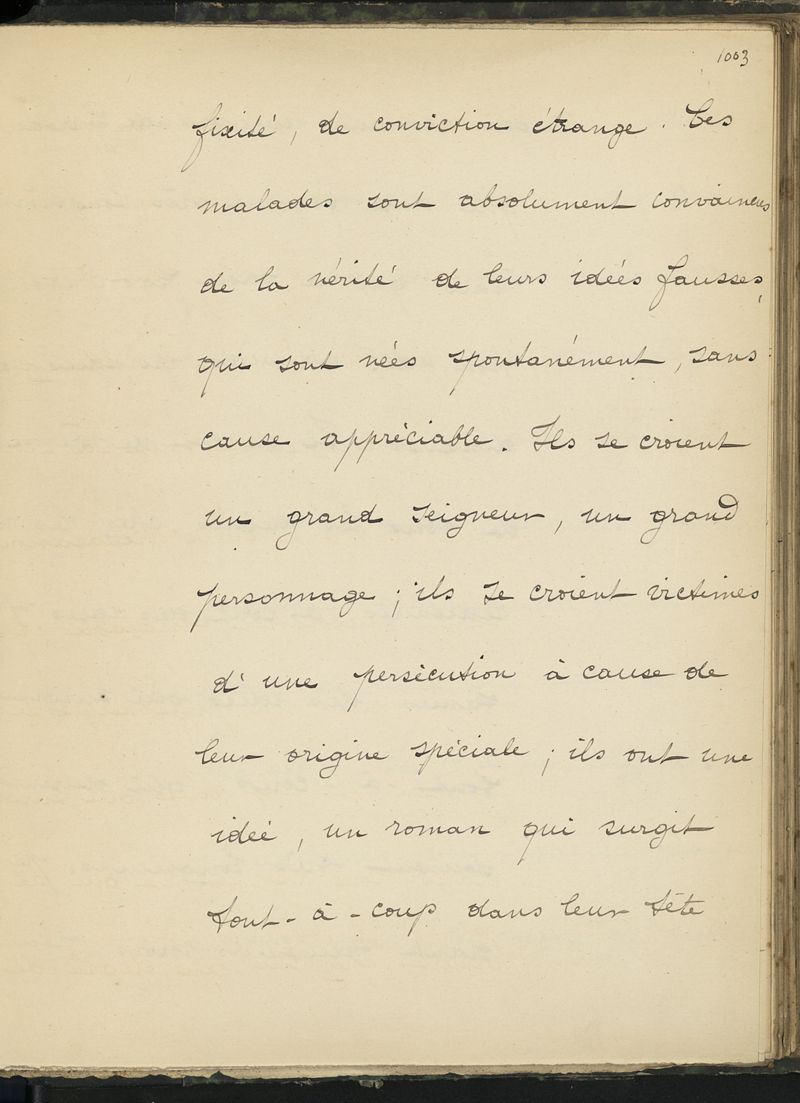 1003
fixité, de conviction étrange. Ces
malades sont absolument convaincus
de la vérité de leurs idées fausses,
qui sont nées spontanément, sans
cause appréciable. Ils se croient
un grand seigneur, un grand
personnage ; ils se croient victimes
d'une persécution à cause de
leur origine spéciale ; ils ont une
idée, un roman qui surgit
tout-à-coup dans leur tête